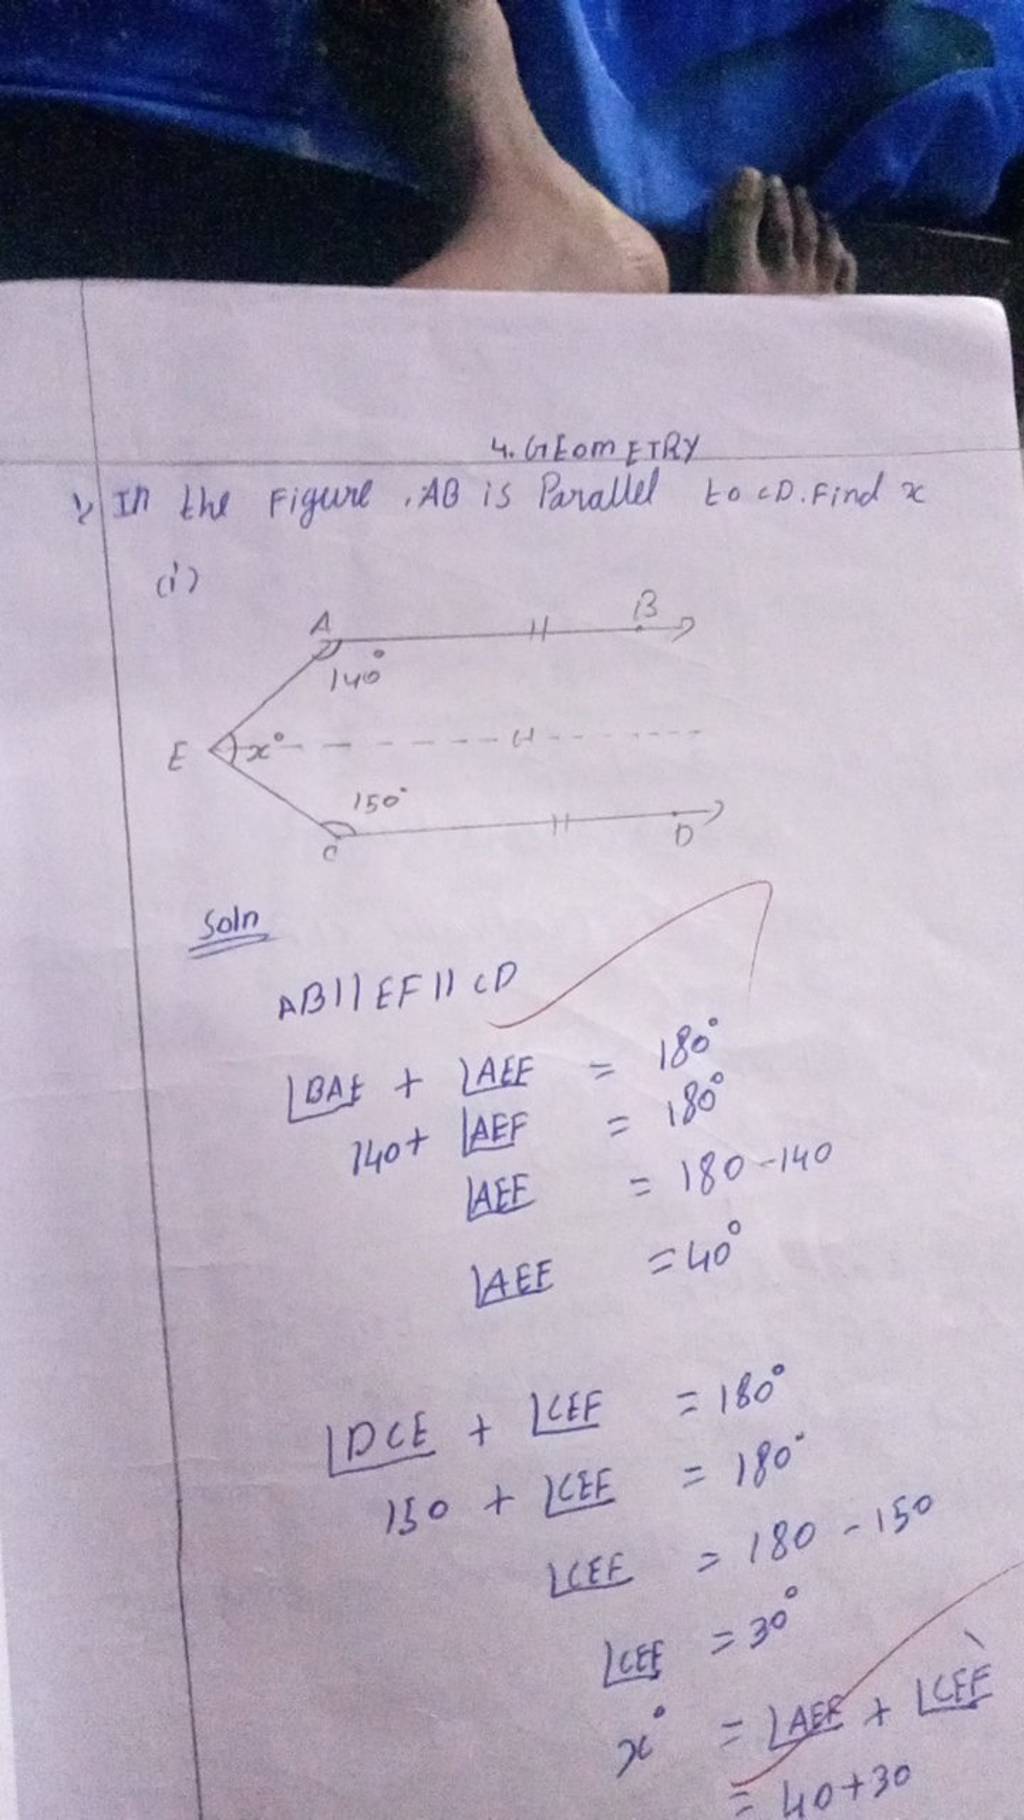 4. GEOMETRY
1. In the Figure, AB is Parallel to CD. Find x
(i)
A B
140°
E x°
150°
C D
Soln
AB || EF || CD
∠BAE + ∠AEF = 180°
140 + ∠AEF = 180°
∠AEF = 180 - 140
∠AEF = 40°
∠DCE + ∠CEF = 180°
150 + ∠CEF = 180°
∠CEF = 180 - 150
∠CEF = 30°
x° = ∠AEF + ∠CEF
= 40+30